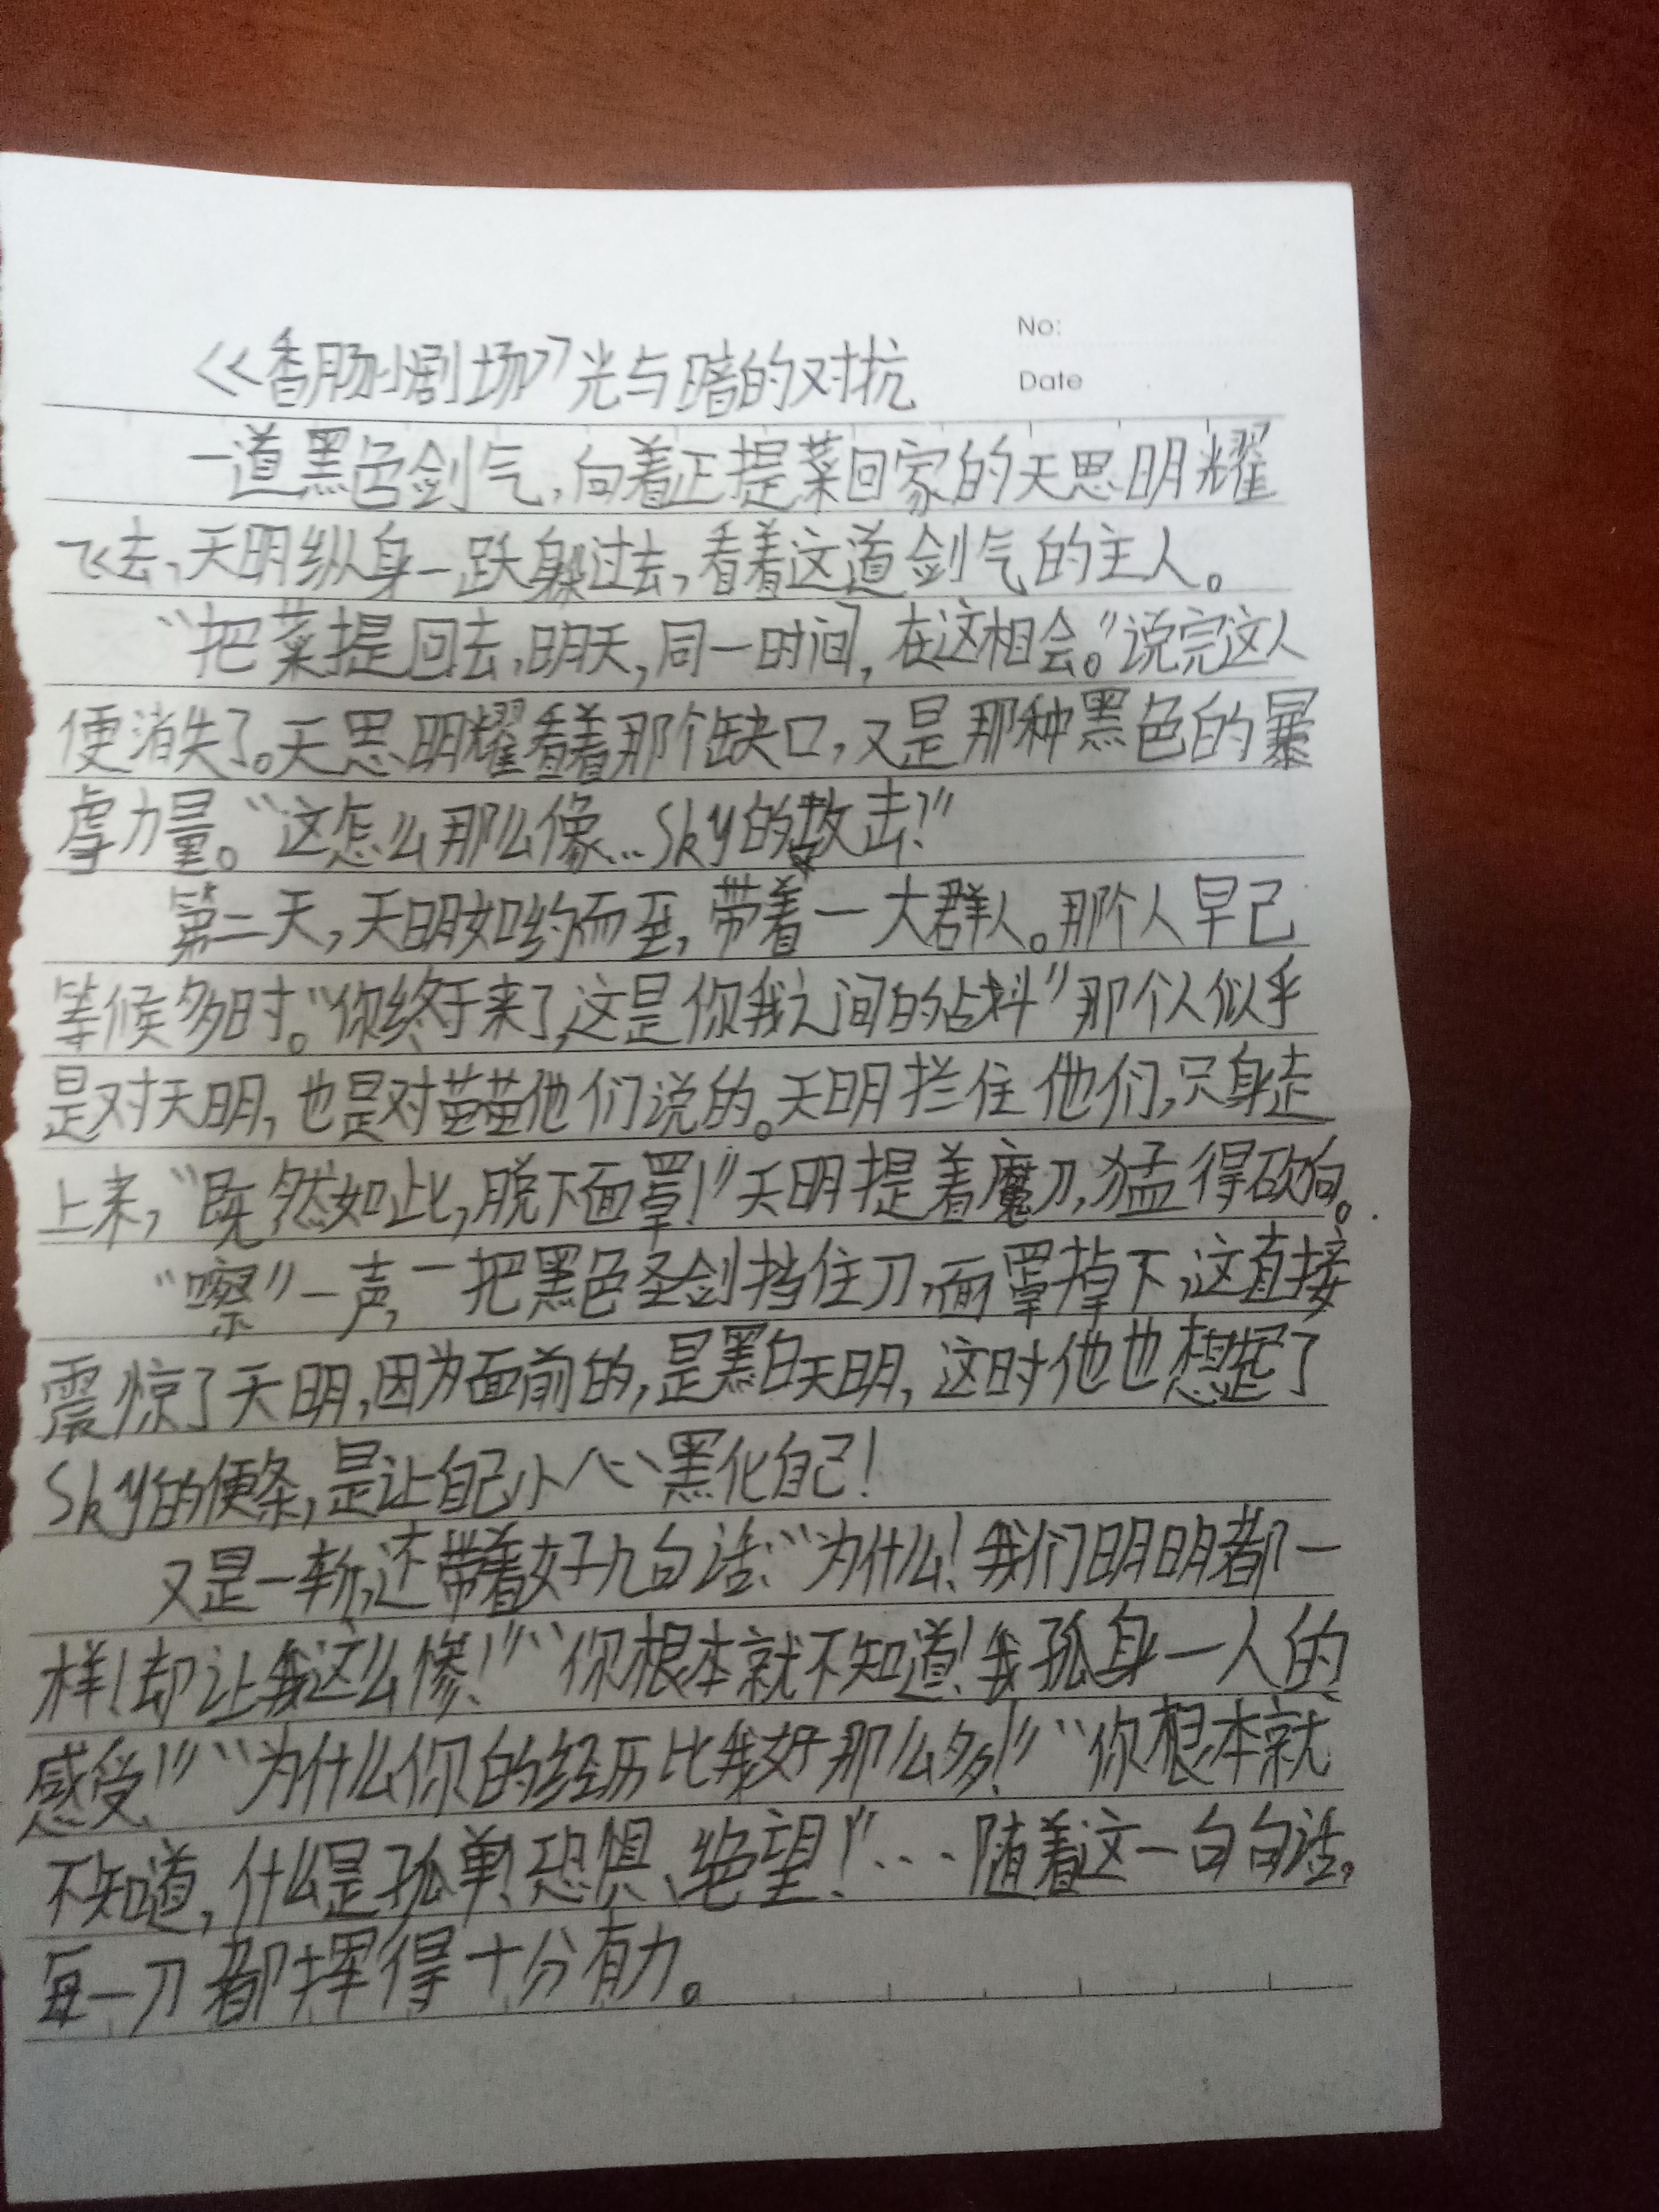 《香肠小剧场》光与暗的对抗
No:
Date
一道黑色剑气,向着正提菜回家的天思明耀
飞去,天明纵身一跃躲过去,看着这道剑气的主人。
“把菜提回去,明天,同一时间,在这相会。”说完这人
便消失了。天思明耀看着那个缺口,又是那种黑色的暴
虐力量。“这怎么那么像...Sky的攻击!”
第二天,天明如约而至,带着一大群人。那个人早已
等候多时。“你终于来了,这是你我之间的”那个人似乎
是对天明,也是对苗苗他们说的。天明拦住他们,只身走
上来,“既然如此,脱下面罩!”天明提着魔刀,猛得砍向。
“嚓”一声,一把黑色圣剑挡住刀,面罩掉下,这直接
震惊了天明,因为面前的,是黑白天明,这时他也想起了
Sky的便条,是让自己小心黑化自己!
又是一斩,还带着好几句话:“为什么!我们明明都一
样!却让我这么惨!”“你根本就不知道!我孤身一人的
感受!”“为什么你的经历比我好那么多!”“你根本就
不知道,什么是孤单!恐惧、绝望!”...随着这一句句话,
每一刀都挥得十分有力。